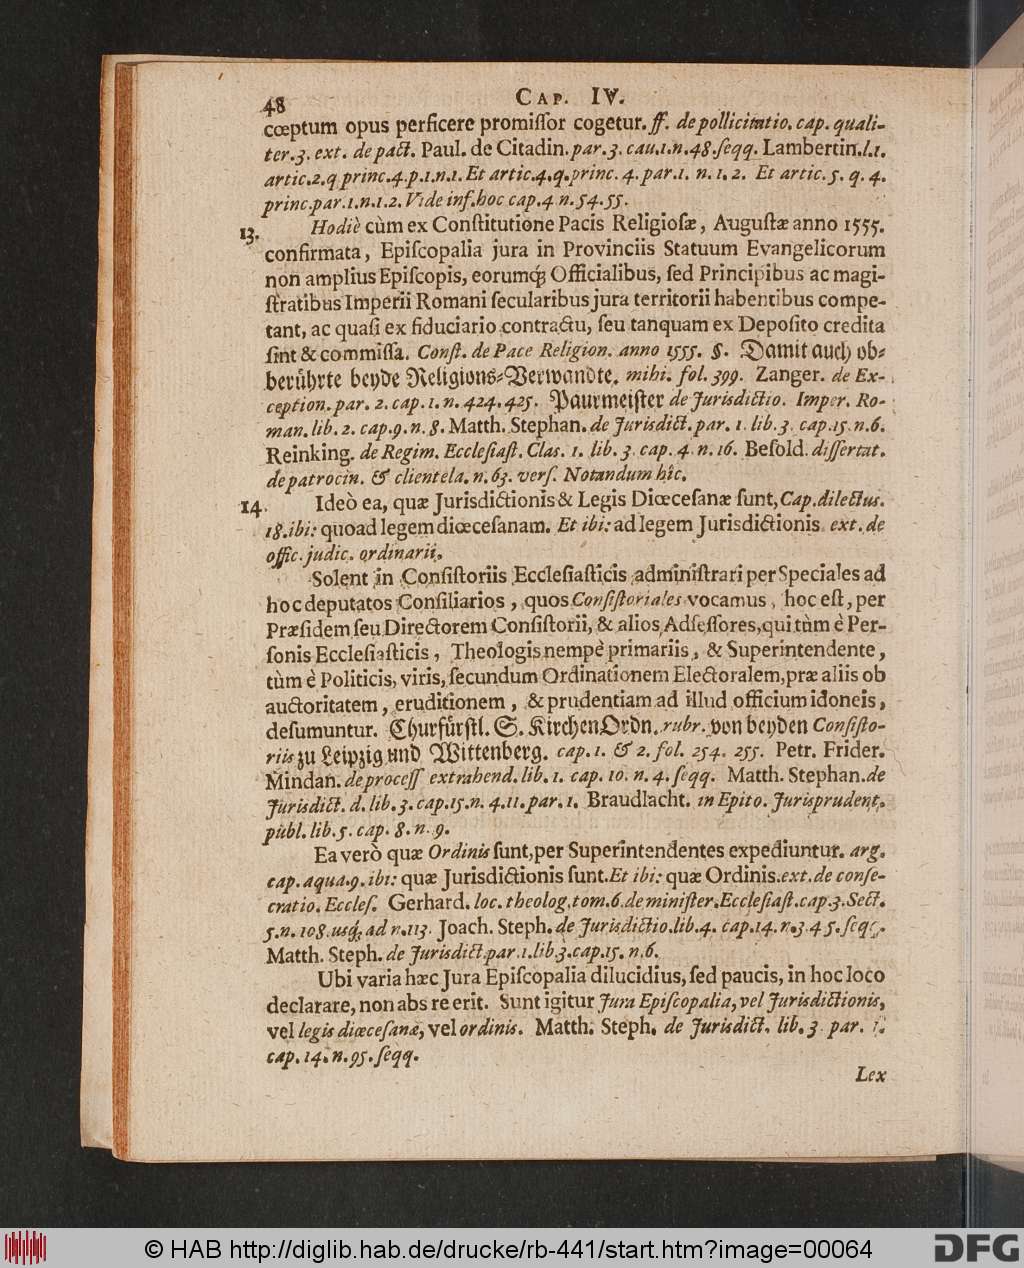 48
CAP. IV.
cœptum opus perficere promiſſor cogetur. ff. de pollicitatio. cap. quali-
ter. 3. ext. de pact. Paul. de Citadin. par. 3. cau. 1. n. 48. ſeqq. Lambertin. l. 1.
artic. 2. q princ. 4. p. 1. n. 1. Et artic. 4. q. princ. 4. par. 1. n. 1. 2. Et artic. 5. q. 4.
princ. par. 1. n. 1. 2. Vide inf. hoc cap. 4 n. 54. 55.
13. Hodiè cùm ex Conſtitutione Pacis Religioſæ, Auguſtæ anno 1555.
confirmata, Epiſcopalia jura in Provinciis Statuum Evangelicorum
non amplius Epiſcopis, eorumq́; Officialibus, ſed Principibus ac magi-
ſtratibus Imperii Romani ſecularibus jura territorii habentibus compe-
tant, ac quaſi ex fiduciario contractu, ſeu tanquam ex Depoſito credita
ſint & commiſſa. Conſt. de Pace Religion. anno 1555. §. Damit auch ob-
berührte beyde Religions-Verwandte. mihi. fol. 399. Zanger. de Ex-
ception. par. 2. cap. 1. n. 424. 425. Paurmeiſter de Jurisdictio. Imper. Ro-
man. lib. 2. cap. 9. n. 8. Matth. Stephan. de Jurisdict. par. 1. lib. 3. cap. 15. n. 6.
Reinking. de Regim. Eccleſiaſt. Claſ. 1. lib. 3. cap. 4. n. 16. Beſold. diſſertat.
de patrocin. & clientela. n. 63. verſ. Notandum hîc.
14. Ideò ea, quæ Jurisdictionis & Legis Diœceſanæ ſunt, Cap. dilectus.
18. ibi: quoad legem diœceſanam. Et ibi: ad legem Jurisdictionis. ext. de
offic. judic. ordinarii.
Solent in Conſiſtoriis Eccleſiaſticis adminiſtrari per Speciales ad
hoc deputatos Conſiliarios, quos Conſiſtoriales vocamus, hoc eſt, per
Præſidem ſeu Directorem Conſiſtorii, & alios Adſeſſores, qui tùm è Per-
ſonis Eccleſiaſticis, Theologis nempè primariis, & Superintendente,
tùm è Politicis, viris, ſecundum Ordinationem Electoralem, præ aliis ob
auctoritatem, eruditionem, & prudentiam ad illud officium idoneis,
deſumuntur. Churfürſtl. S. KirchenOrdn. rubr. von beyden Conſiſto-
riis zu Leipzig und Wittenberg. cap. 1. & 2. fol. 254. 255. Petr. Frider.
Mindan. de proceſſ extrahend. lib. 1. cap. 10. n. 4. ſeqq. Matth. Stephan. de
Jurisdict. d. lib. 3. cap. 15. n. 4. 11. par. 1. Braudlacht. in Epito. Jurisprudent.
publ. lib. 5. cap. 8. n. 9.
Ea verò quæ Ordinis ſunt, per Superintendentes expediuntur. arg.
cap. aqua. 9. ibi: quæ Jurisdictionis ſunt. Et ibi: quæ Ordinis. ext. de conſe-
cratio. Eccleſ. Gerhard. loc. theolog. tom. 6. de miniſter. Eccleſiaſt. cap. 3. Sect.
5. n. 108. usq́; ad n. 113. Joach. Steph. de Jurisdictio. lib. 4. cap. 14. n. 3. 4 5. ſeqq.
Matth. Steph. de Jurisdict. par. 1. lib 3. cap. 15. n. 6.
Ubi varia hæc Jura Epiſcopalia dilucidius, ſed paucis, in hoc loco
declarare, non abs re erit. Sunt igitur Jura Epiſcopalia, vel Jurisdictionis,
vel legis diœceſanæ, vel ordinis. Matth. Steph. de Jurisdict. lib. 3. par. 1.
cap. 14. n. 95. ſeqq.
Lex
© HAB http://diglib.hab.de/drucke/rb-441/start.htm?image=00064
DFG